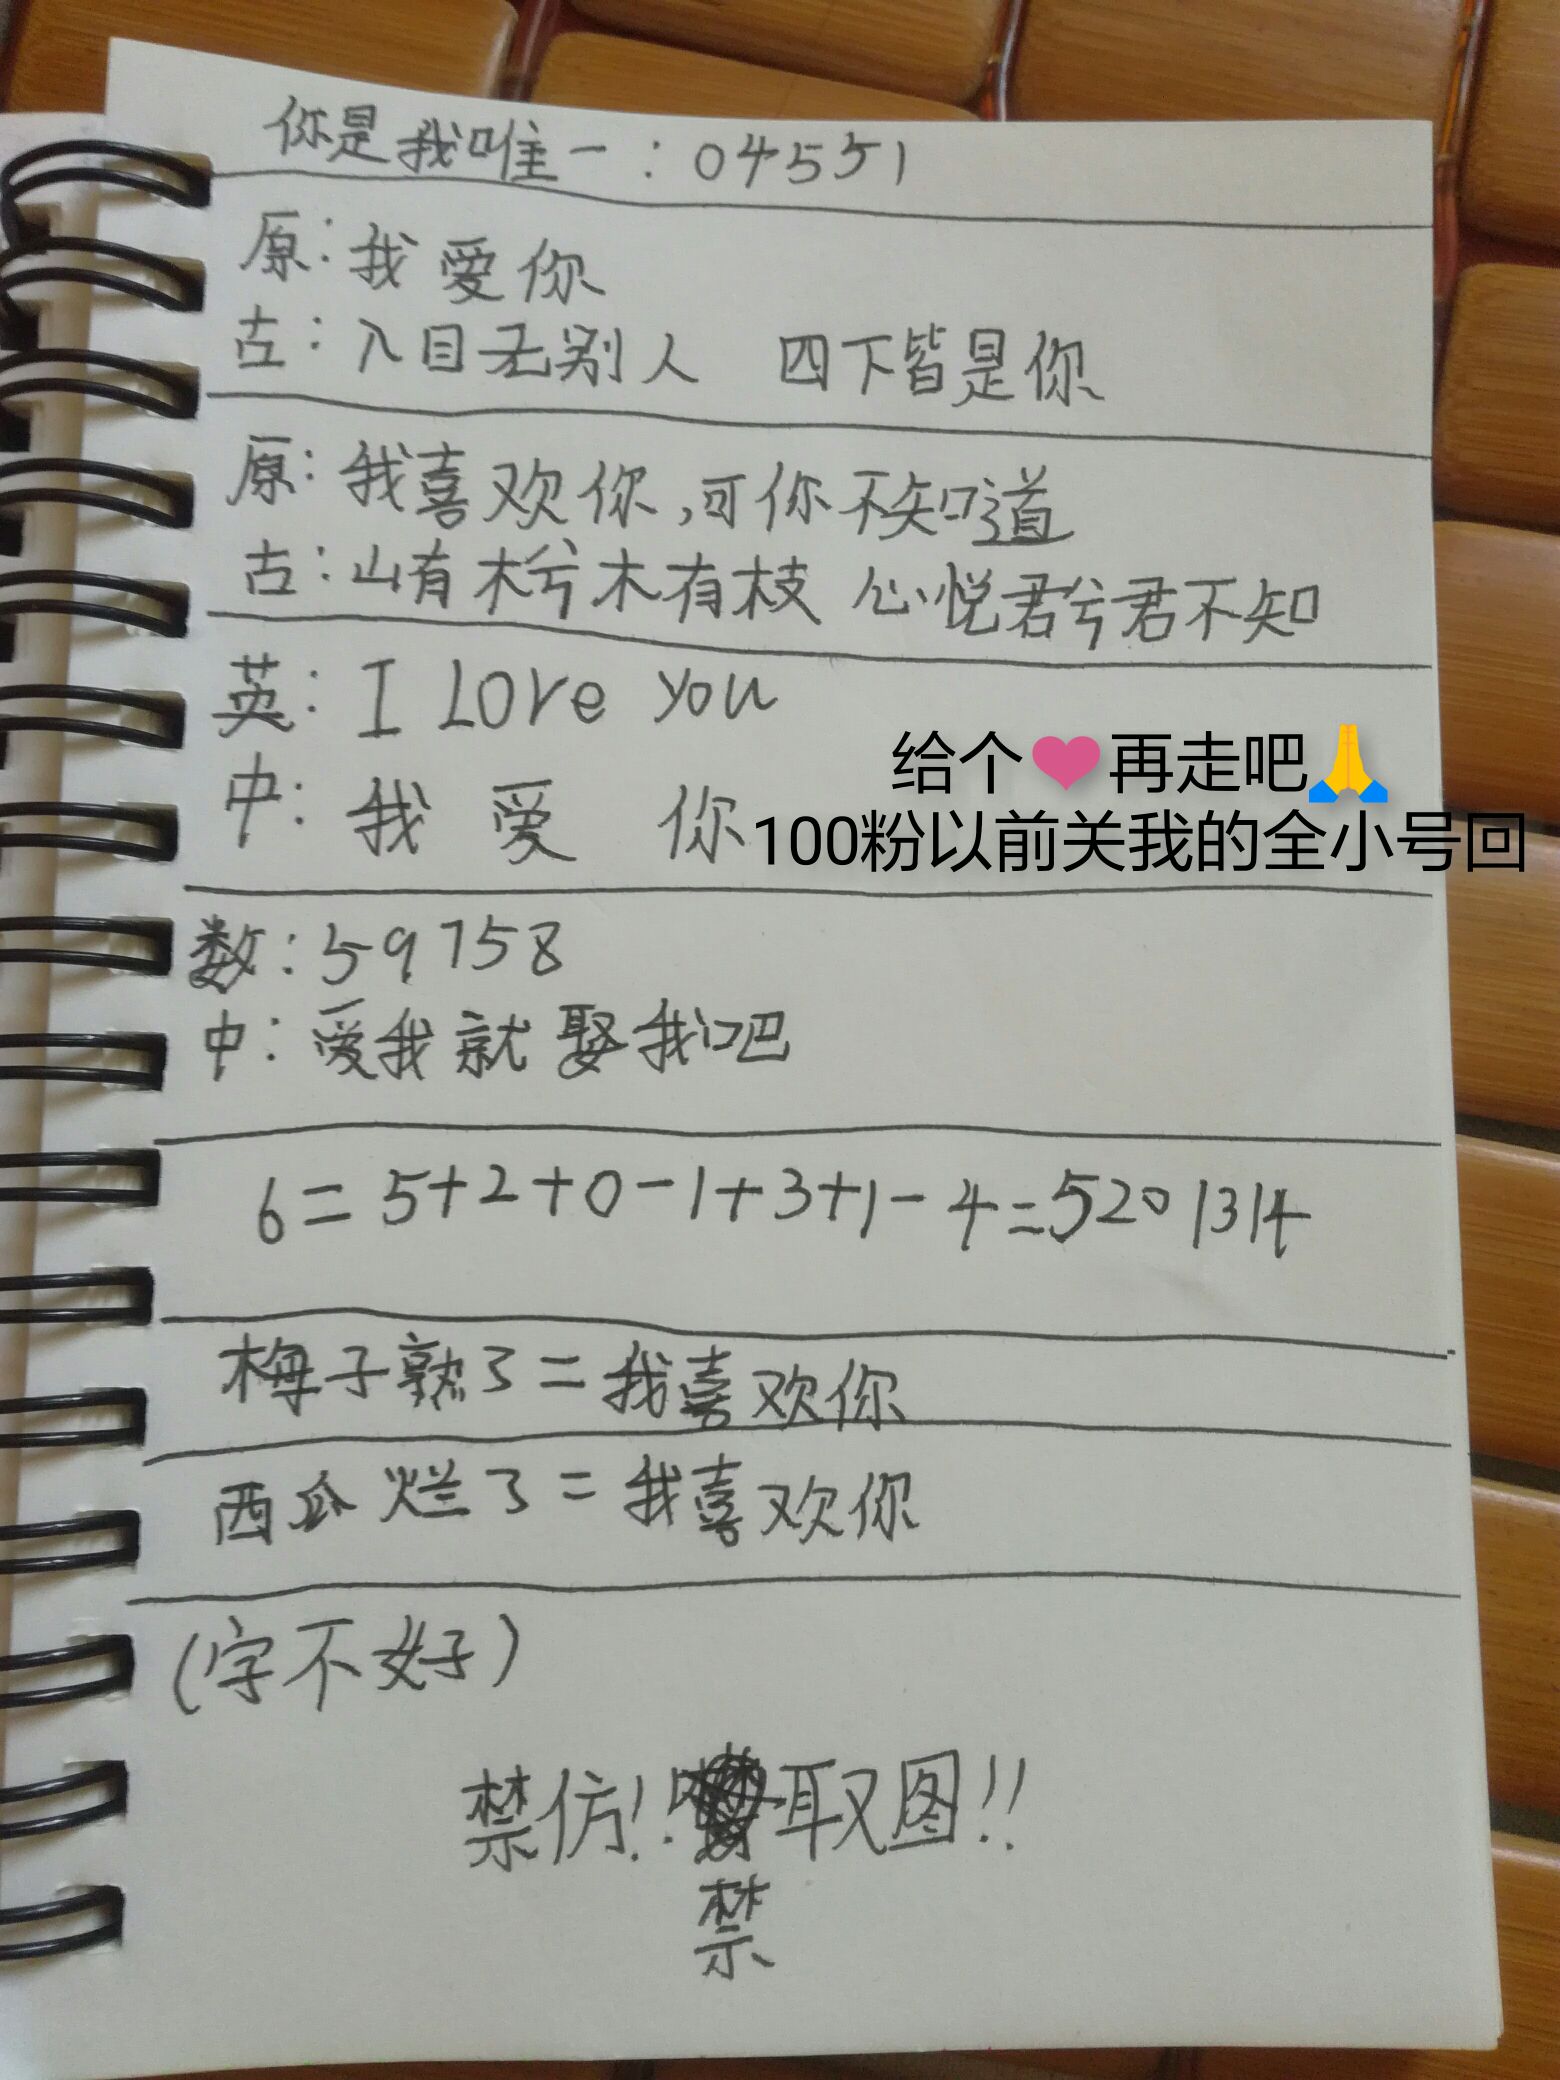 你是我唯一：04551
原：我爱你
古：入目无别人 四下皆是你
原：我喜欢你，可你不知道
古：山有木兮木有枝 心悦君兮君不知
英：I Love you
中：我爱你
给个❤再走吧🙏
100粉以前关我的全小号回
数：59758
中：爱我就娶我吧
6=5+2+0-1+3+1-4=5201314
梅子熟了=我喜欢你
西瓜烂了=我喜欢你
（字不好）
禁仿！！取图！！
禁